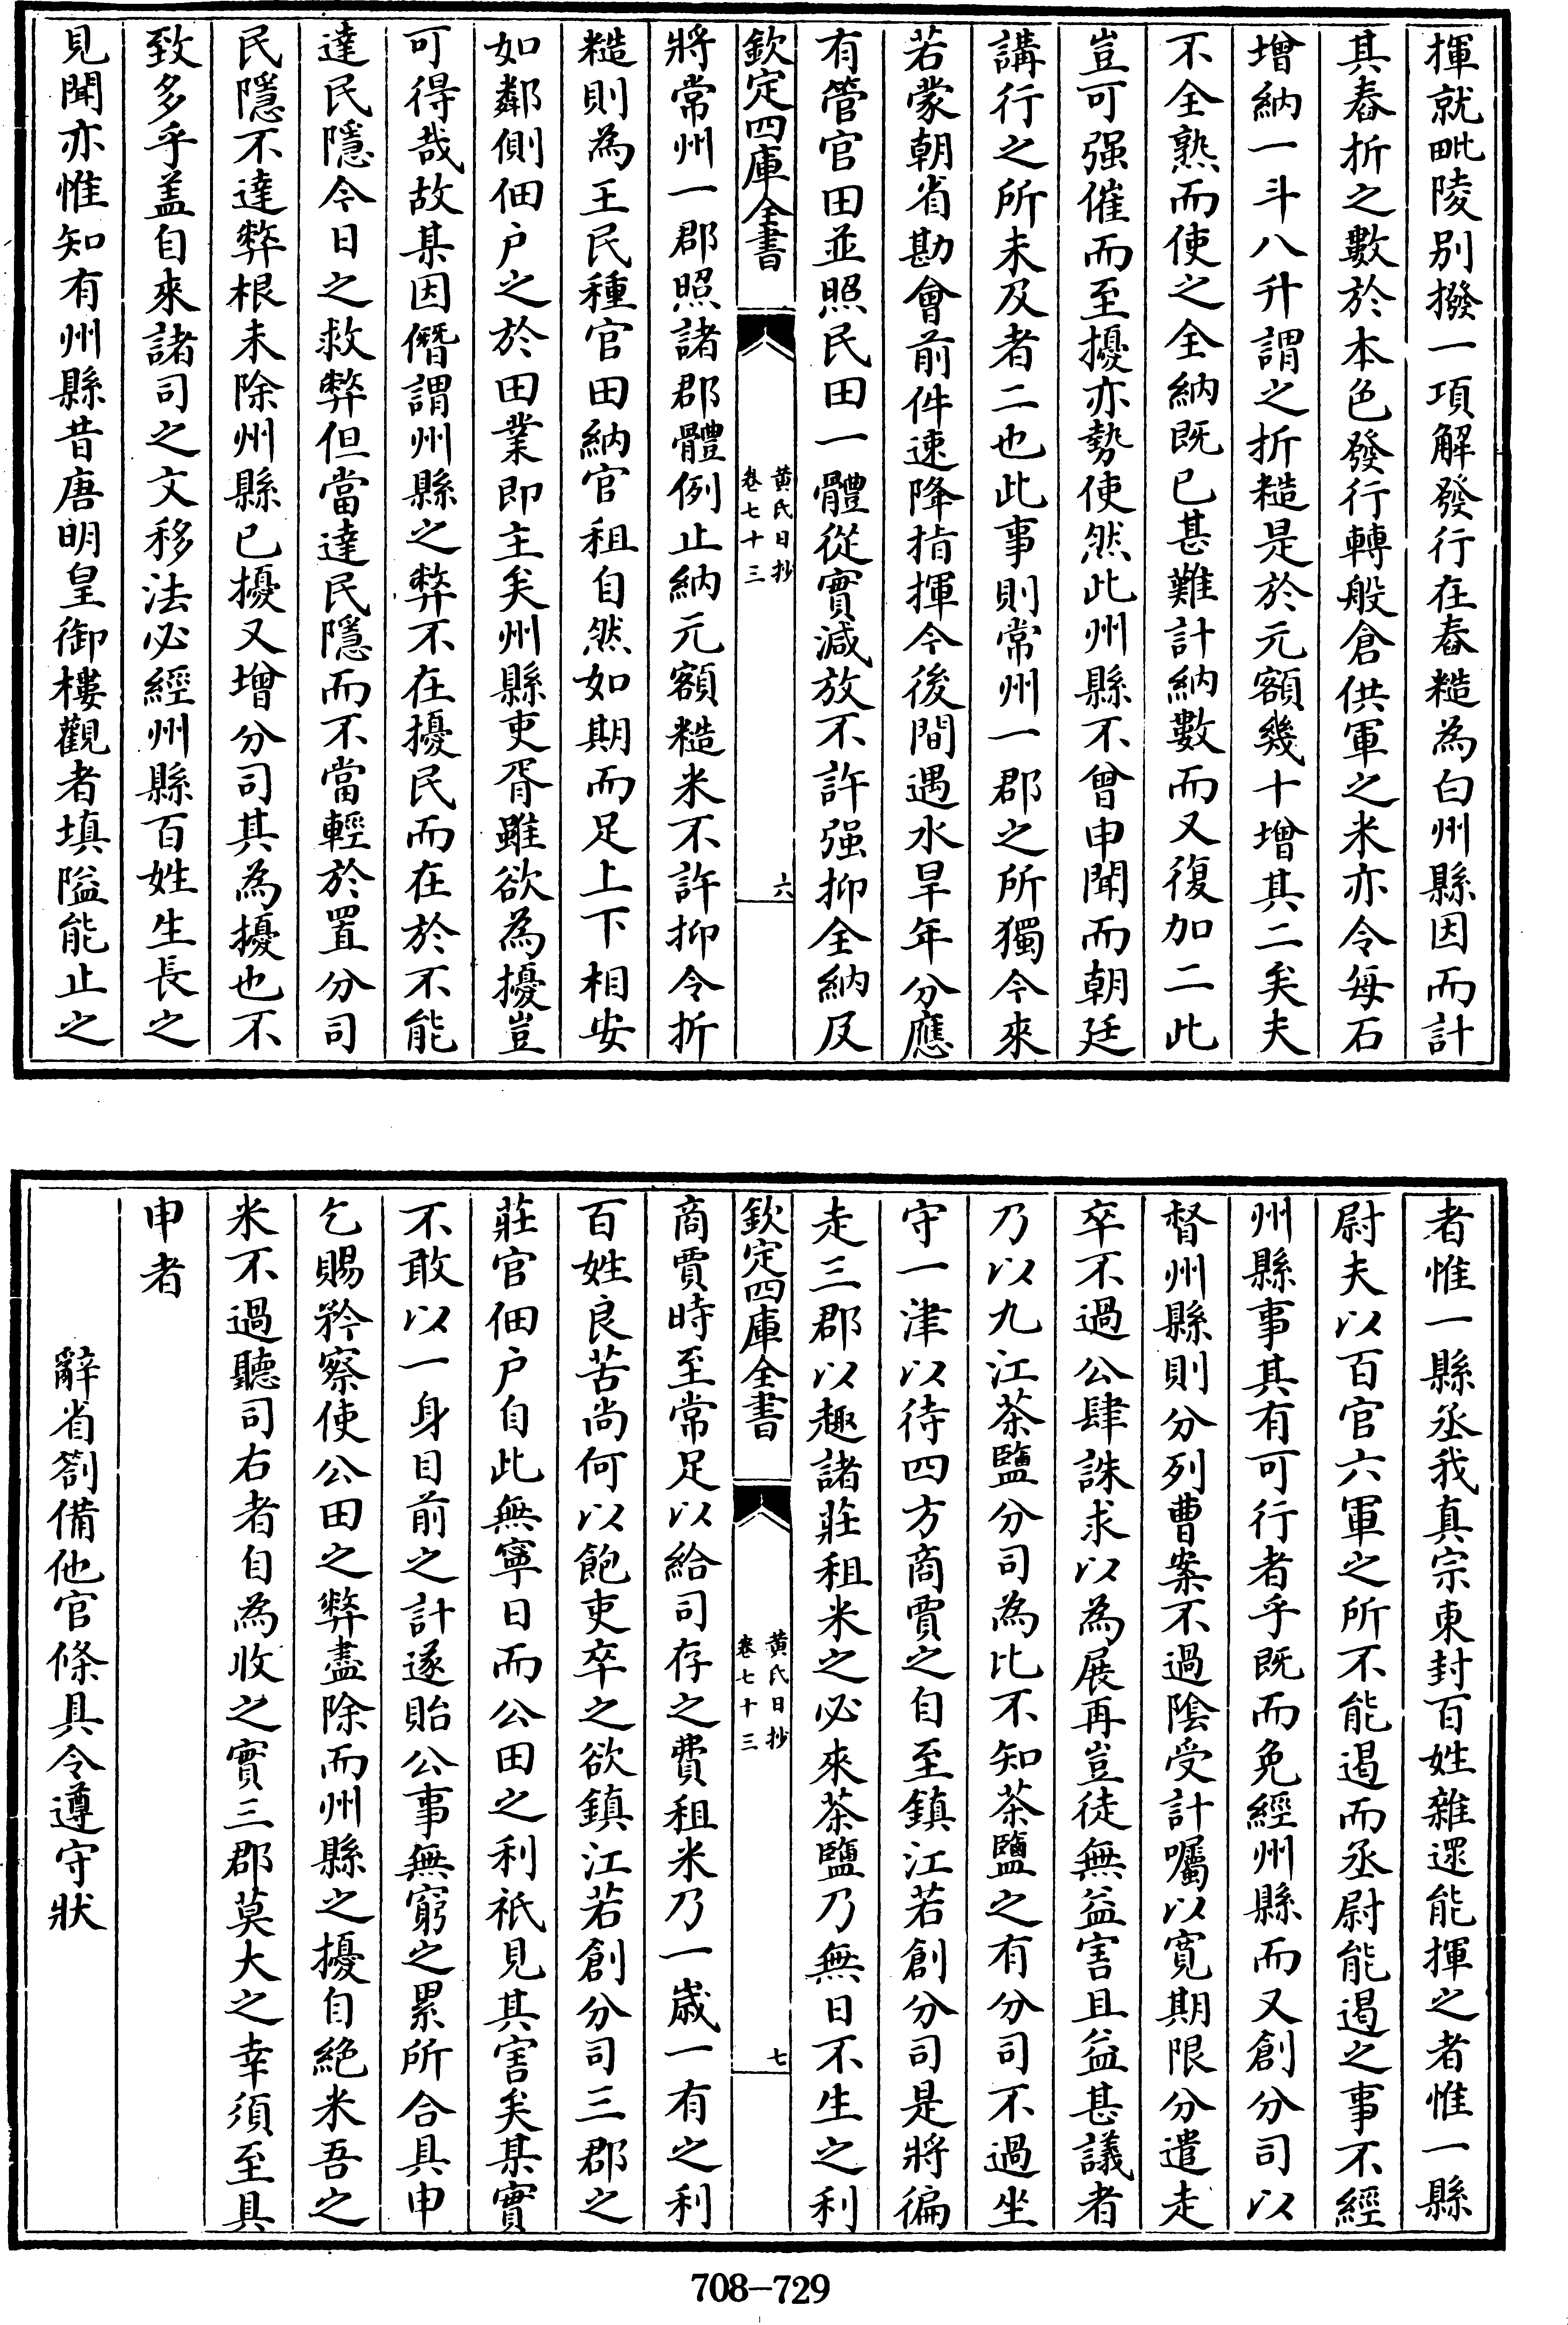 揮就毗陵别撥一項解發行在舂糙為白州縣因而計
其舂折之數於本色發行轉般倉供軍之米亦令每石
增納一斗八升謂之折糙是於元額幾十增其二矣夫
不全熟而使之全納既已甚難計納數而又復加二此
豈可强催而至擾亦勢使然此州縣不曾申聞而朝廷
講行之所未及者二也此事則常州一郡之所獨今來
若蒙朝省勘會前件速降指揮今後間遇水旱年分應
有管官田並照民田一體從實減放不許强抑全納及
欽定四庫全書
黄氏日抄
卷七十三
六
將常州一郡照諸郡體例止納元額糙米不許抑令折
糙則為王民種官田納官租自然如期而足上下相安
如鄰側佃户之於田業即主矣州縣吏胥雖欲為擾豈
可得哉故某因僭謂州縣之弊不在擾民而在於不能
達民隱今日之救弊但當達民隱而不當輕於置分司
民隱不達弊根未除州縣已擾又增分司其為擾也不
致多乎盖自來諸司之文移法必經州縣百姓生長之
見聞亦惟知有州縣昔唐明皇御樓觀者填隘能止之
者惟一縣丞我真宗東封百姓雜還能揮之者惟一縣
尉夫以百官六軍之所不能遏而丞尉能遏之事不經
州縣事其有可行者乎既而免經州縣而又創分司以
督州縣則分列曹案不過陰受計囑以寛期限分遣走
卒不過公肆誅求以為展再豈徒無益害且益甚議者
乃以九江茶鹽分司為比不知茶鹽之有分司不過坐
守一津以待四方商賈之自至鎮江若創分司是將徧
走三郡以趣諸莊租米之必來茶鹽乃無日不生之利
欽定四庫全書
黄氏日抄
卷七十三
七
商賈時至常足以給司存之費租米乃一歲一有之利
百姓良苦尚何以飽吏卒之欲鎮江若創分司三郡之
莊官佃户自此無寧日而公田之利祇見其害矣某實
不敢以一身目前之計遂貽公事無窮之累所合具申
乞賜矜察使公田之弊盡除而州縣之擾自絶米吾之
米不過聽司右者自為收之實三郡莫大之幸須至具
申者
辭省劄備他官條具令遵守狀
708—729